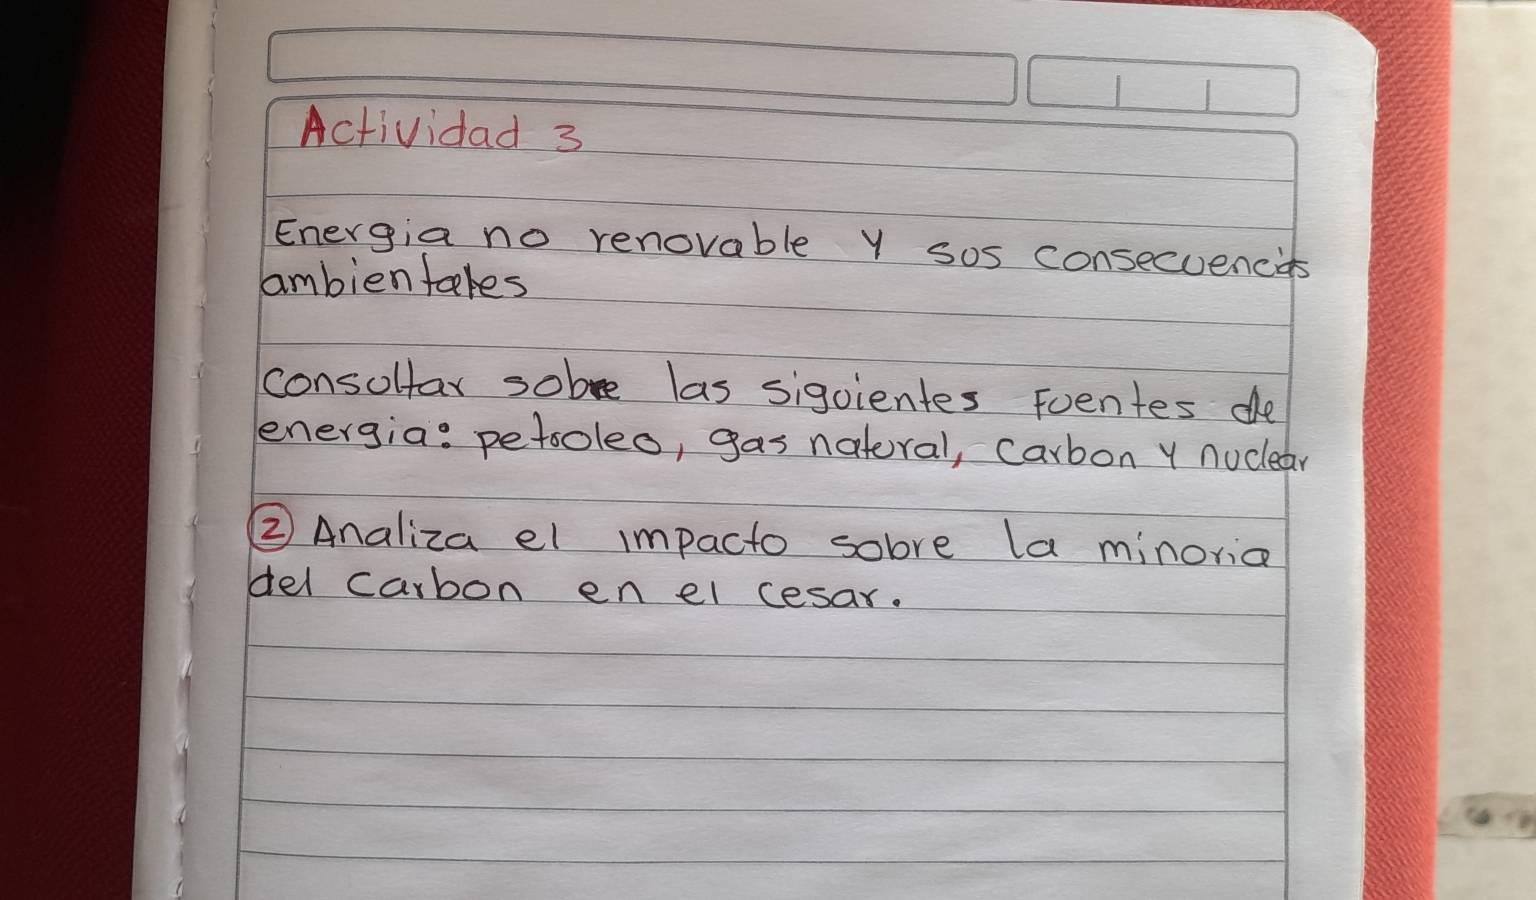 Actividad 3
Energia no renovable y sos consecuencias
ambientales
consoltar sobre las sigoientes Foentes de
energia: petroleo, gas natoral, carbon y nuclear
② Analiza el impacto sobre la minoria
del carbon en el cesar.